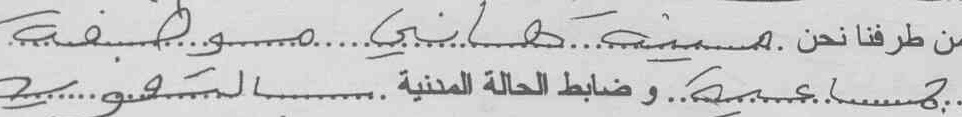 من طرفنا نحن .مينة هاني موظفة
جماعية و ضابط الحالة المدنية بالتفويض